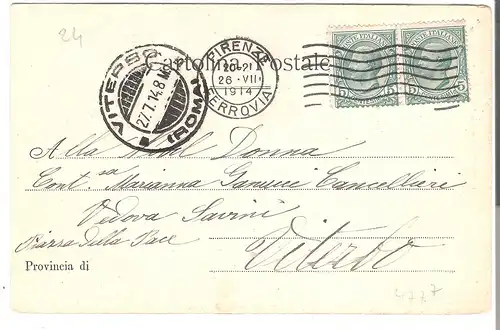 24
Cartolina Postale
VITERBO
27.7.14.8M
(ROMA)
FIRENZE
20-21
26·VII
1914
FERROVIA
POSTE ITALIANE POSTE ITALIANE
5 5 5 5
Alla Nobil Donna
Cont.ssa Marianna Ganucci Cancellieri
Vedova Savini
Piazza della Pace
Viterbo
Provincia di
4777